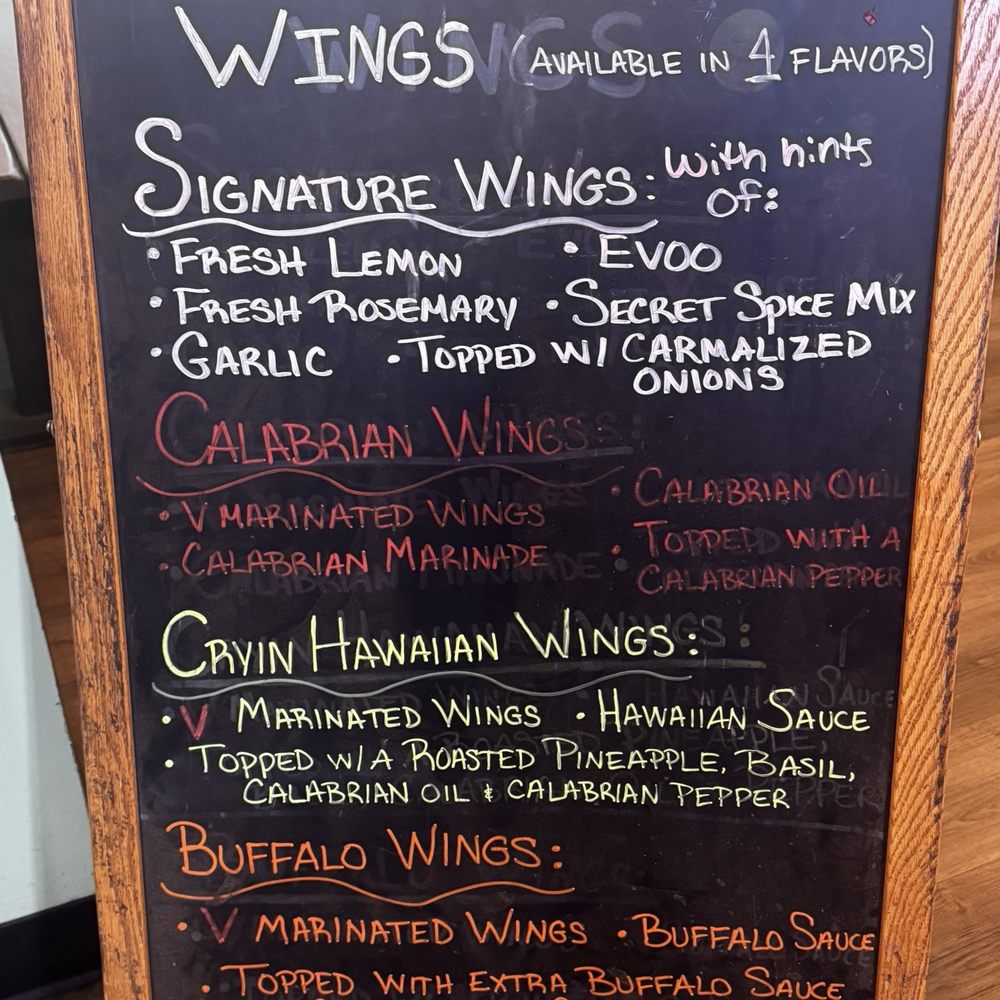 WINGS (AVAILABLE IN 4 FLAVORS)
SIGNATURE WINGS: with hints of:
• FRESH LEMON • EVOO
• FRESH ROSEMARY • SECRET SPICE MIX
• GARLIC • TOPPED W/ CARMALIZED
ONIONS
CALABRIAN WINGS:
• V MARINATED WINGS • CALABRIAN OIL
• CALABRIAN MARINADE • TOPPED WITH A
CALABRIAN PEPPER
CRYIN HAWAIIAN WINGS:
• V MARINATED WINGS • HAWAIIAN SAUCE
• TOPPED W/A ROASTED PINEAPPLE, BASIL,
CALABRIAN OIL & CALABRIAN PEPPER
BUFFALO WINGS:
• V MARINATED WINGS • BUFFALO SAUCE
• TOPPED WITH EXTRA BUFFALO SAUCE